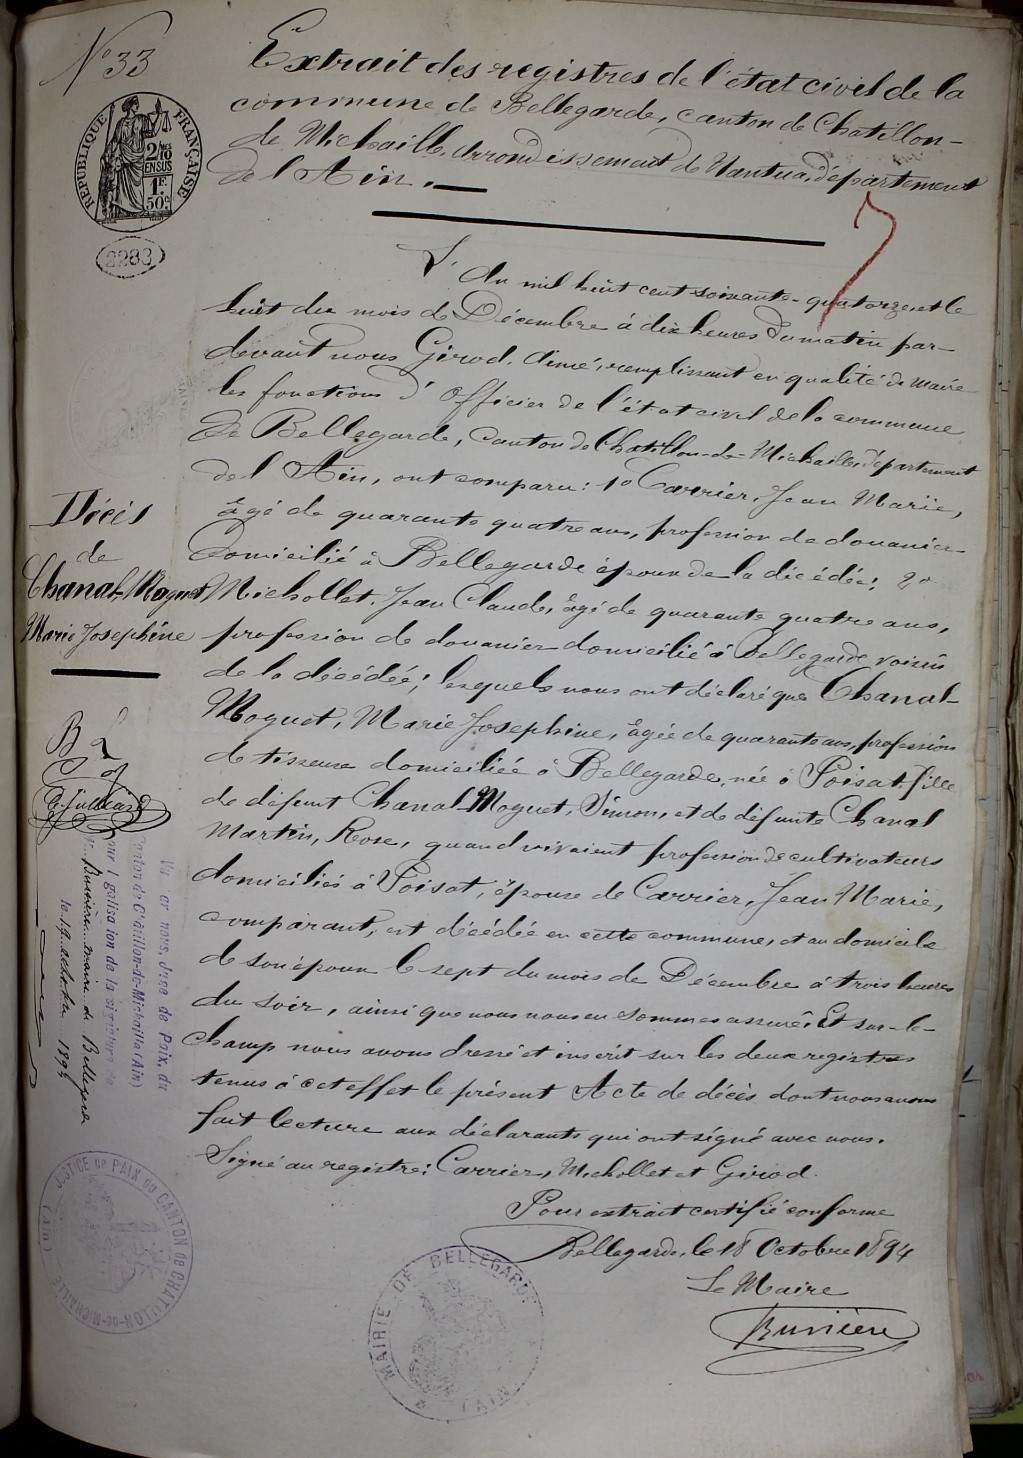 N° 33
Extrait des registres de l'état civil de la
commune de Bellegarde, canton de Chatillon-
de Michaille, Arrondissement de Nantua, département
de l'Ain.
RÉPUBLIQUE FRANÇAISE
2/10es
EN SUS
1F.
50c
2283
7
L'An mil huit cent soixante-quatorze et le
huit du mois de Décembre à dix heures du matin par-
devant nous Girod, Aimé, remplissant en qualité de Maire
les fonctions d'Officier de l'état civil de la commune
de Bellegarde, Canton de Chatillon-de-Michaille, département
de l'Ain, ont comparu: 1° Carrier, Jean Marie,
âgé de quarante quatre ans, profession de douanier
domicilié à Bellegarde époux de la décédée; 2°
Michollet, Jean Claude, âgé de quarante quatre ans,
profession de douanier domicilié à Bellegarde voisin
de la décédée; lesquels nous ont déclaré que Chanal-
Moguet, Marie Josephine, âgée de quarante ans, profession
de tisseuse domiciliée à Bellegarde, née à Poisat, fille
de défunt Chanal-Moguet, Simon, et de défunte Chanal
Martin, Rose, quand vivaient profession de cultivateurs
domiciliés à Poisat, épouse de Carrier, Jean Marie,
comparant, est décédée en cette commune, et au domicile
de son époux le sept du mois de Décembre à trois heures
du soir, ainsi que nous nous en sommes assuré. Et sur-le-
champ nous avons dressé et inscrit sur les deux registres
tenus à cet effet le présent Acte de décès dont nous avons
fait lecture aux déclarants qui ont signé avec nous.
Signé au registre: Carrier, Michollet et Girod.
Pour extrait certifié conforme
Bellegarde, le 18 Octobre 1894
Le Maire
Bussière
MAIRIE DE BELLEGARDE
(AIN)
Décès
de
Chanal-Moguet
Marie Josephine
Vu par nous, Juge de Paix, du
Canton de Châtillon-de-Michaille (Ain)
pour légalisation de la signature de
M. Bussière maire de Bellegarde
le 19 octobre 1894
JUSTICE DE PAIX DU CANTON DE CHATILLON-DE-MICHAILLE
(AIN)